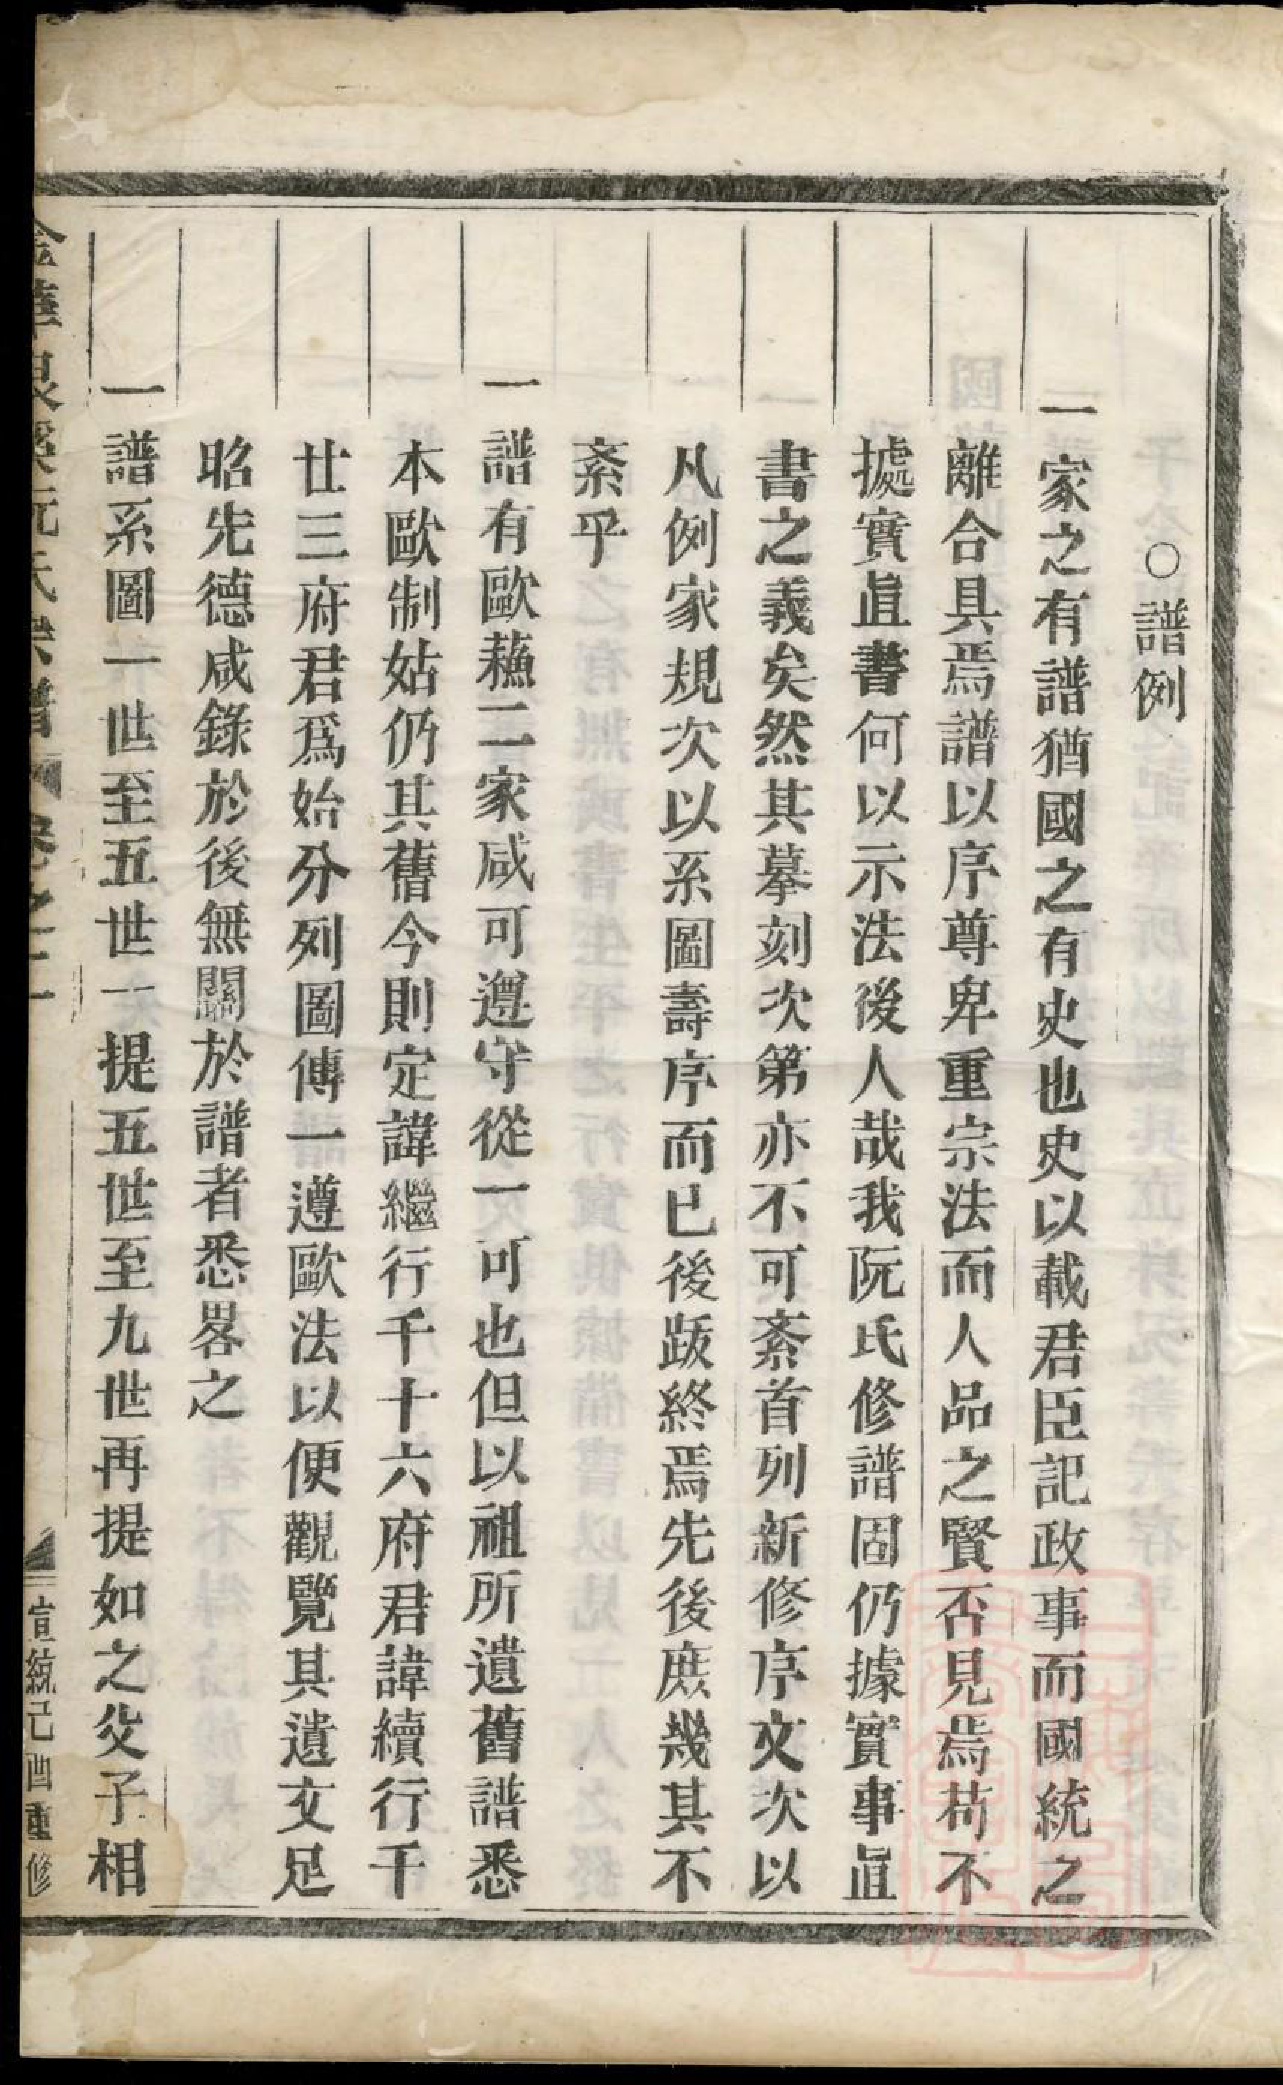 ○譜例
一家之有譜猶國之有史也史以載君臣記政事而國統之
離合具焉譜以序尊卑重宗法而人品之賢否見焉苟不
據實直書何以示法後人哉我阮氏修譜固仍據實事直
書之義矣然其摹刻次第亦不可紊首列新修序文次以
凡例家規次以系圖壽序而已後跋終焉先後庶幾其不
紊乎
一譜有歐蘓二家咸可遵守從一可也但以祖所遺舊譜悉
本歐制姑仍其舊今則定諱繼行千十六府君諱續行千
廿三府君爲始分列圖傳一遵歐法以便觀覽其遺文足
昭先德咸錄於後無關於譜者悉畧之
一譜系圖一世至五世一提五世至九世再提如之父子相
金華 溪阮氏宗譜 卷之一 一 宣統己酉重修